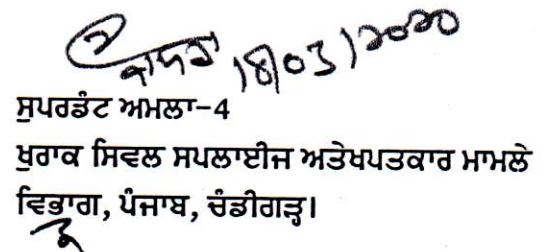 18/03/2020
ਸੁਪਰਡੰਟ ਅਮਲਾ-4
ਖੁਰਾਕ ਸਿਵਲ ਸਪਲਾਈਜ ਅਤੇਖਪਤਕਾਰ ਮਾਮਲੇ
ਵਿਭਾਗ, ਪੰਜਾਬ, ਚੰਡੀਗੜ੍ਹ।